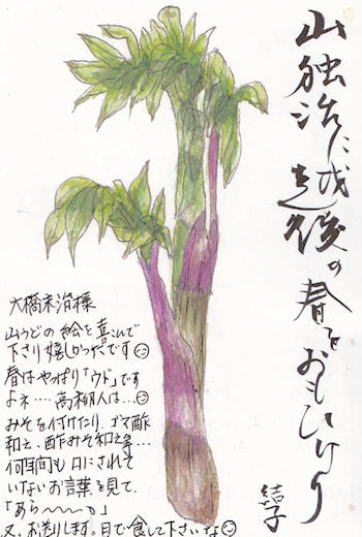 山独活に越後の春をおもひけり
結子
大橋末治様
山うどの絵を喜んで
下さり嬉しかったです
春はやっぱり「ウド」です
よネ…高柳人は…
みそを付けたり、ゴマ酢
和え、酢みそ和え等…
何年間も口にされて
いないお言葉を見て、
「あら〜〜〜」
又、お送りします。目で食して下さいな